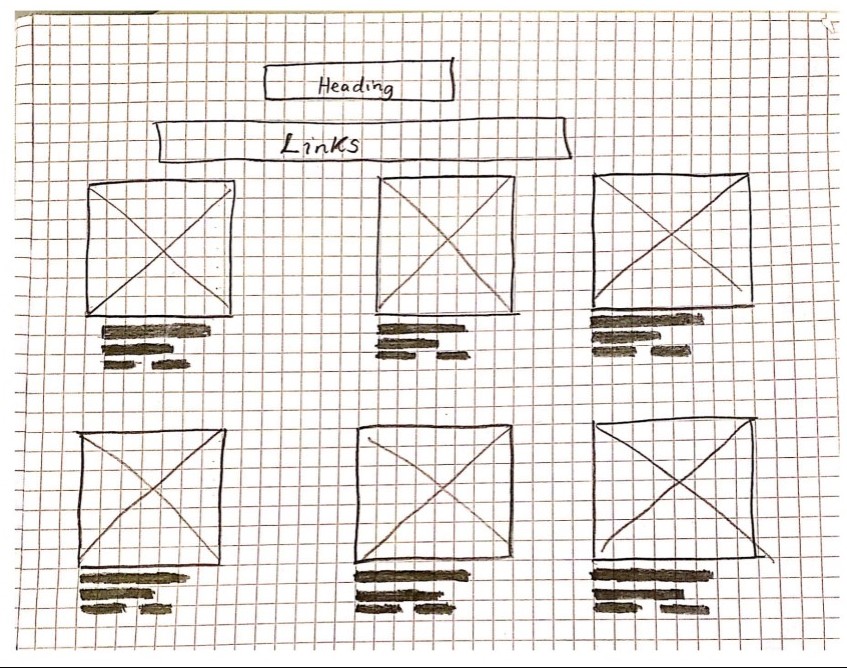 Heading
Links